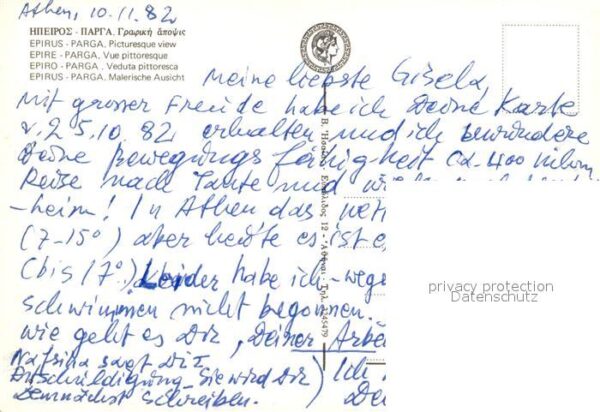 Athen, 10.11.82
ΗΠΕΙΡΟΣ - ΠΑΡΓΑ. Γραφική ἄποψις
EPIRUS - PARGA. Picturesque view
EPIRE - PARGA. Vue pittoresque
EPIRO - PARGA. Veduta pittoresca
EPIRUS - PARGA. Malerische Ausicht
Meine liebste Gisela,
Mit grosser Freude habe ich Deine Karte
v. 25.10.82 erhalten und ich bewundere
Deine Bewegungsfähigkeit ca. 400
Reise nach und
-heim! In Athen das
(7-15°) aber heute es ist
(bis 17°) Leider habe ich -wege
schwimmen nicht begonnen.
Wie geht es Dir, Deiner Arbe
sagt Dir
Entschuldigung. Sie wird Dir) Ich
demnächst schreiben. De
12 - Ἀθῆναι, Τηλ.
privacy protection
Datenschutz